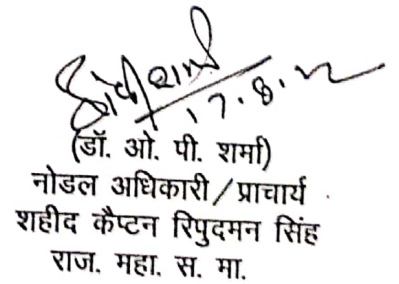 ओ पी शर्मा
17.8.22
(डॉ. ओ. पी. शर्मा)
नोडल अधिकारी/प्राचार्य
शहीद कैप्टन रिपुदमन सिंह
राज. महा. स. मा.